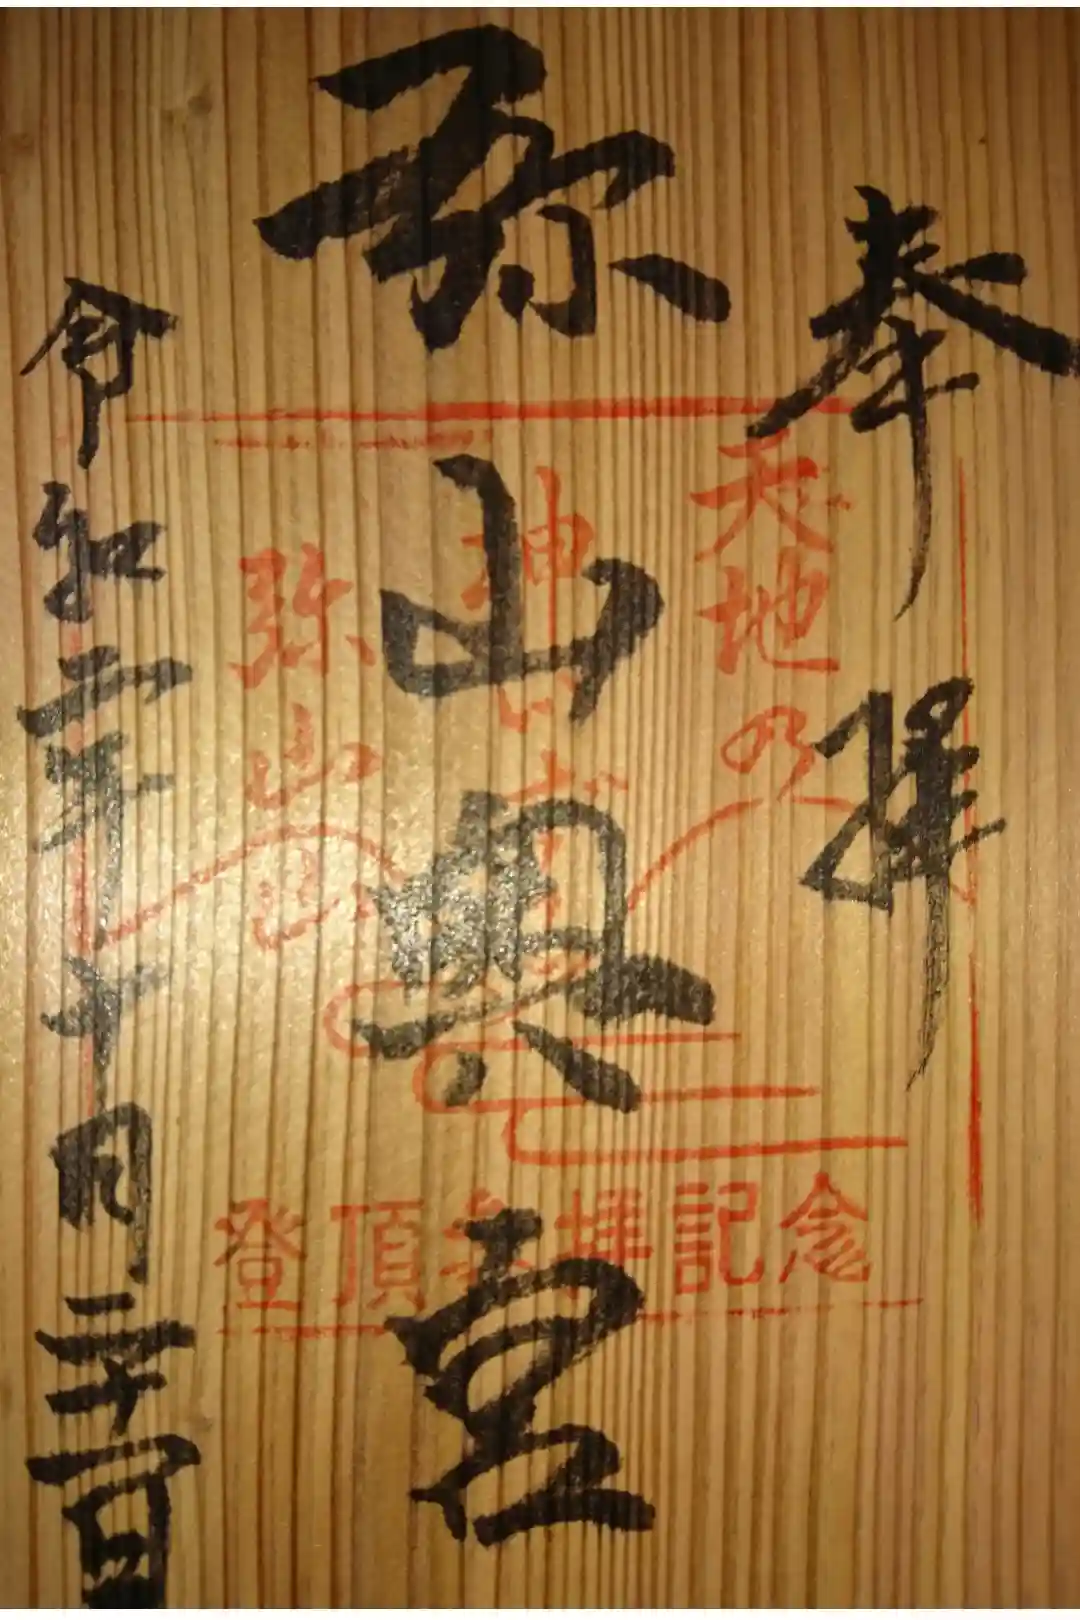 奉拝
弥山奥宮
令和二年十月二十一日
天地
弥山
登頂参拝記念